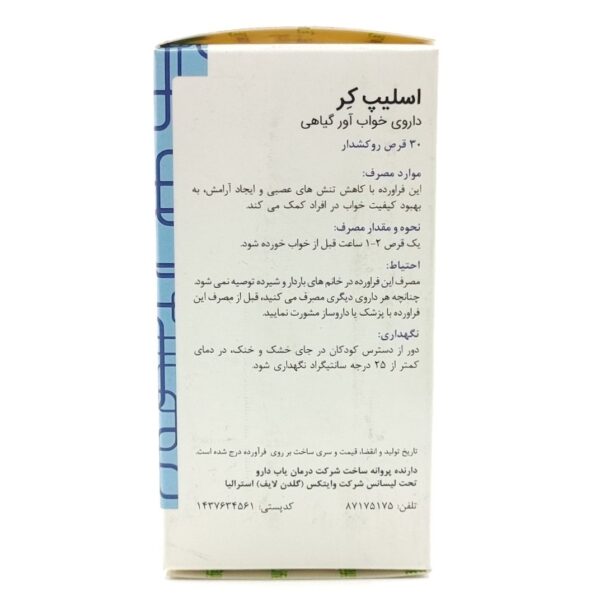 اسلیپ کِر
داروی خواب آور گیاهی
۳۰ قرص روکشدار
موارد مصرف:
این فراورده با کاهش تنش های عصبی و ایجاد آرامش، به
بهبود کیفیت خواب در افراد کمک می کند.
نحوه و مقدار مصرف:
یک قرص ۲-۱ ساعت قبل از خواب خورده شود.
احتیاط:
مصرف این فراورده در خانم های باردار و شیرده توصیه نمی شود.
چنانچه هر داروی دیگری مصرف می کنید، قبل از مصرف این
فراورده با پزشک یا داروساز مشورت نمایید.
نگهداری:
دور از دسترس کودکان در جای خشک و خنک، در دمای
کمتر از ۲۵ درجه سانتیگراد نگهداری شود.
تاریخ تولید و انقضا، قیمت و سری ساخت بر روی فرآورده درج شده است.
دارنده پروانه ساخت شرکت درمان یاب دارو
تحت لیسانس شرکت وایتکس (گلدن لایف) استرالیا
تلفن: ۸۷۱۷۵۱۷۵ کدپستی: ۱۴۳۷۶۳۴۵۶۱